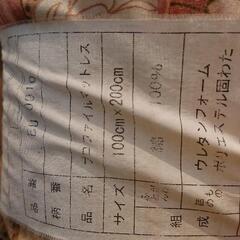 品番
柄番
品名 プロファイルマットレス
サイズ 100cm×200cm
組成 綿 100%
詰めもの ウレタンフォーム
ポリエステル固わた